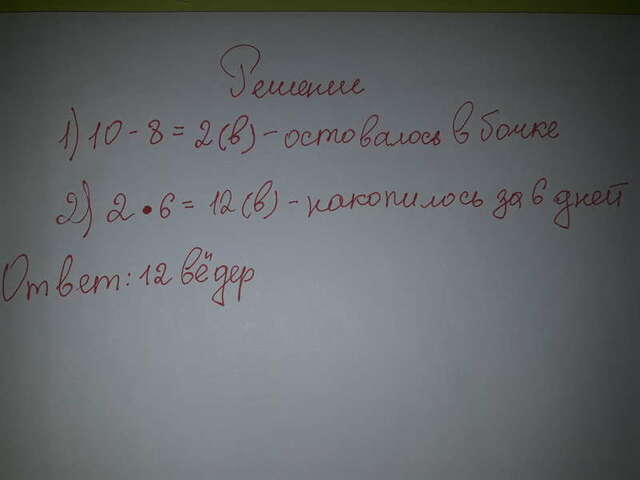 Решение
1) 10 - 8 = 2 (в) - остовалось в бочке
2) 2 • 6 = 12 (в) - накопилось за 6 дней
Ответ: 12 вёдер